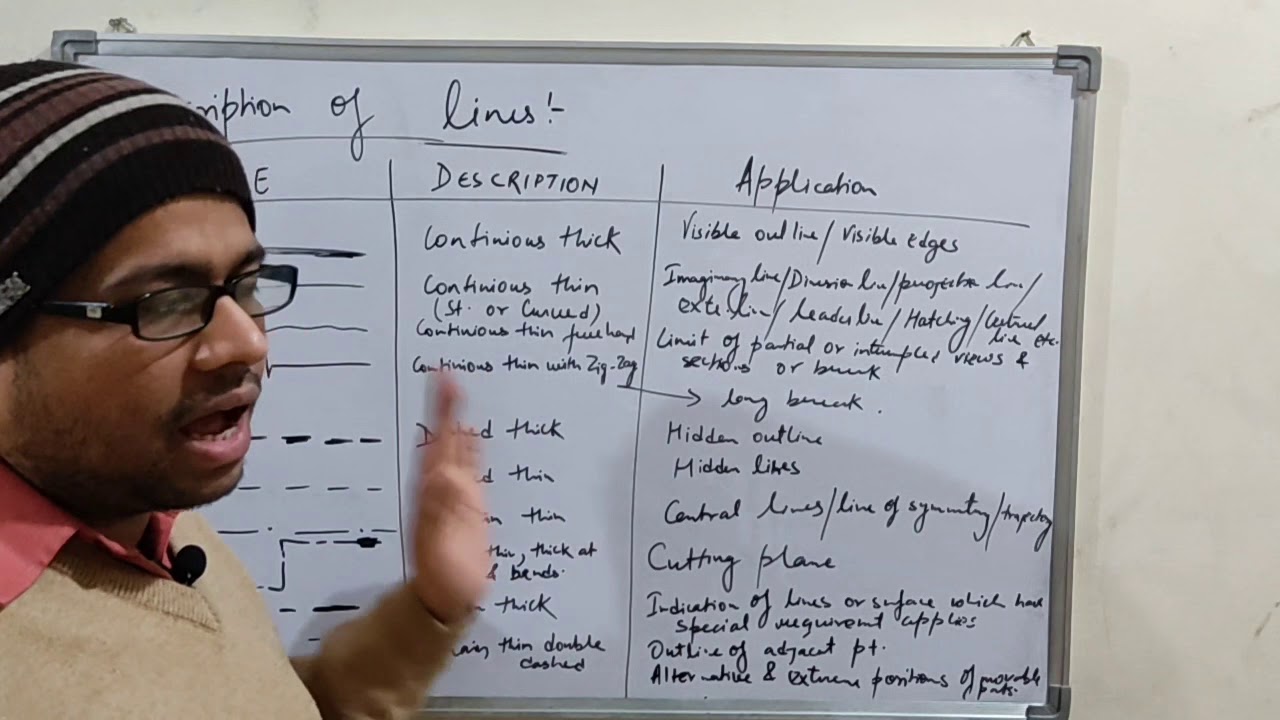 ription of lines:-
E DESCRIPTION Application
Continious thick Visible outline/Visible edges
Continious thin Imaginary line/Dimension line/projection line/
(St. or Curved) exte. line/leader line/Hatching/Central
Continious thin freehand line etc.
Limit of partial or interrupted views &
Continious thin with Zig-Zag sections or break
→ long break.
D hed thick Hidden outline
ed thin Hidden lines
in thin Central lines/line of symmetry/trajectory
thin, thick at Cutting plane
& bends.
n thick Indication of lines or surface which have
special requirement applies
ain thin double Outline of adjacent pt.
dashed
Alternative & extreme positions of movable
parts.